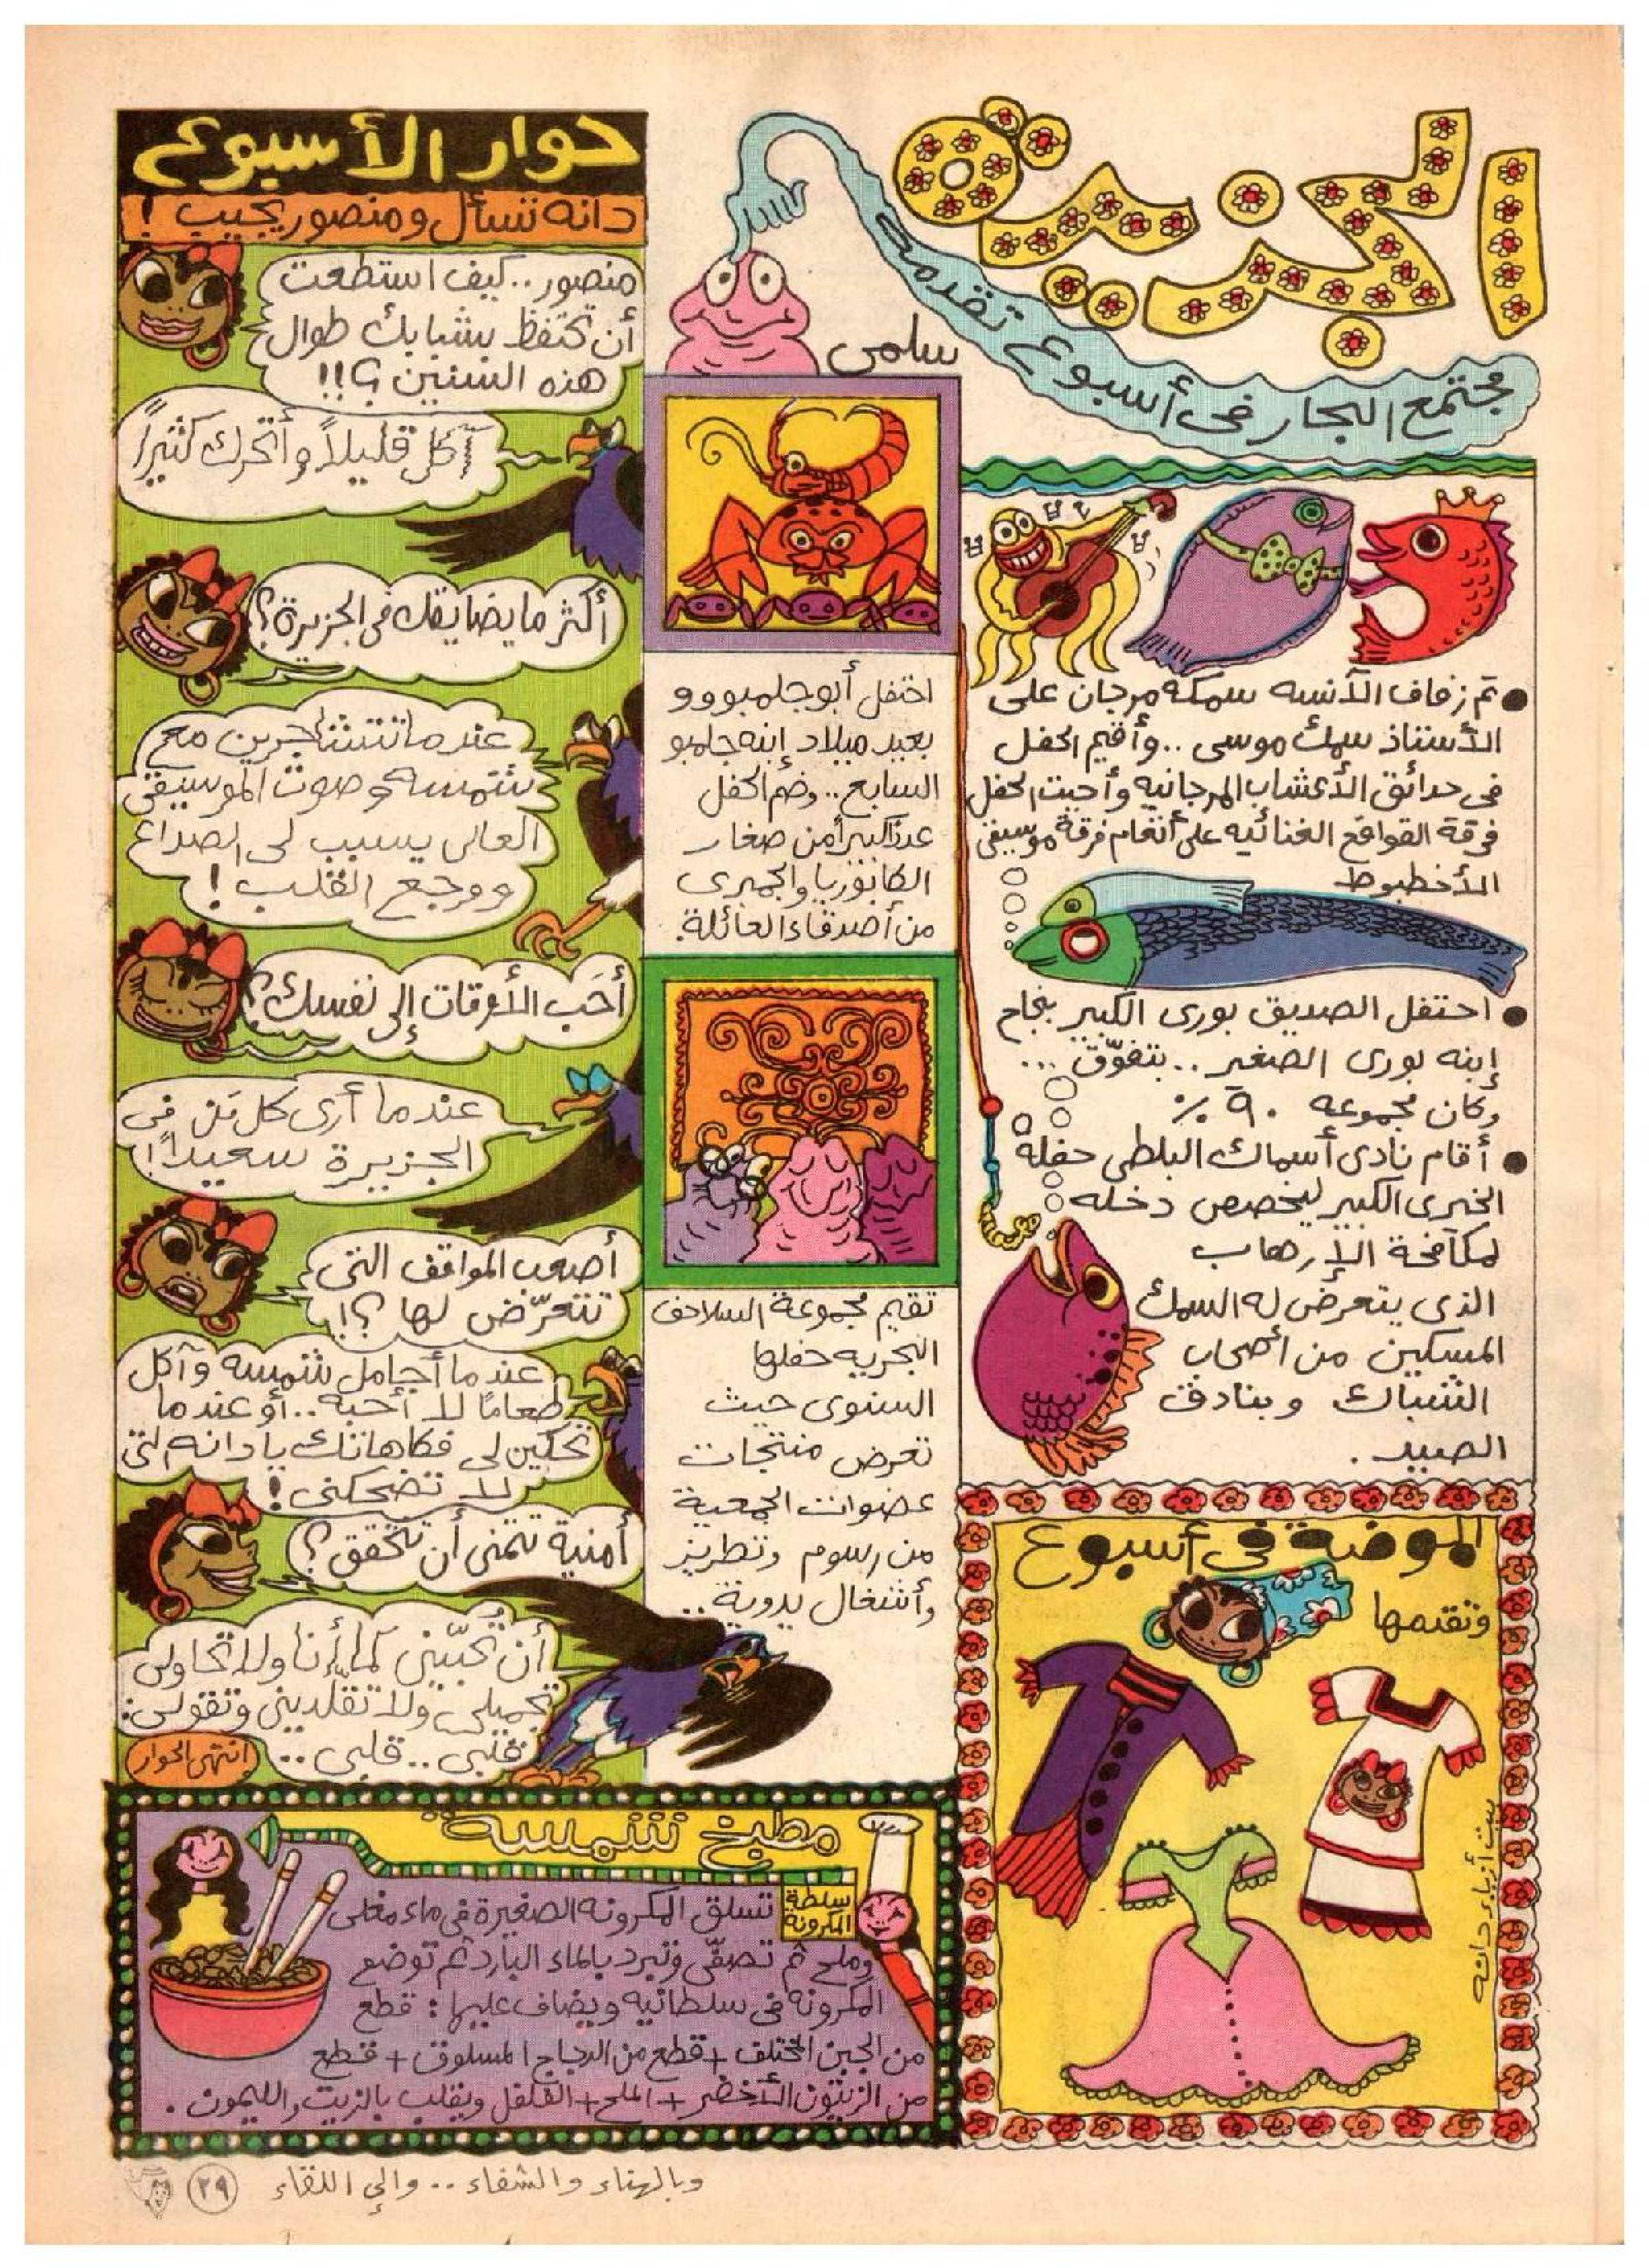 الجزيرة
مجتمع البحار فى أسبوع تقدمه
سلمى
● تم زفاف الآنسه سمكة مرجان على
الأستاذ سمك موسى .. وأقيم الحفل
فى حدائق الأعشاب المرجانيه وأحيت الحفل
فرقة القواقع الغنائيه على أنغام فرقة موسيقى
الأخطبوط
● احتفل الصديق بورى الكبير بنجاح
إبنه بورى الصغير .. بتفوّق ...
وكان مجموعه ٩٠ ٪
● أقام نادى أسماك البلطى حفلة
الخيرى الكبير ليخصص دخله
لمكافحة الإرهاب
الذى يتعرض له السمك
المسكين من أصحاب
الشباك وبنادق
الصيد .
احتفل أبو جلمبووو
بعيد ميلاد إبنه جلمبو
السابع .. وضم الحفل
عدداً كبيراً من صغار
الكابوريا والجمبرى
من أصدقاء العائلة.
تقيم مجموعة السلاحف
البحريه حفلها
السنوى حيث
تعرض منتجات
عضوات الجمعية
من رسوم وتطريز
وأشغال يدوية ..
حوار الأسبوع
دانه تسأل ومنصور يجيب !
منصور .. كيف استطعت
أن تحتفظ بشبابك طوال
هذه السنين ؟!!
آكل قليلاً وأتحرك كثيراً
أكثر ما يضايقك فى الجزيرة ؟
عندما تتشاجرين مع
شمسه وصوت الموسيقى
العالى يسبب لى الصداع
ووجع القلب !
أحَب الأوقات إلى نفسك ؟
عندما أرى كل مَن فى
الجزيرة سعيداً !
أصعب المواقف التى
تتعرّض لها ؟!
عندما أجامل شمسه وآكل
طعامًا لا أحبه .. أو عندما
تحكين لى فكاهاتك يا دانه التى
لا تضحكنى !
أمنية تتمنى أن تتحقق ؟
أن تُحبّينى كما أنا ولا تحاولى
تجميلى ولا تقلّدينى وتقولى :
قنبى .. قلبى ..
إنتهى الحوار
الموضة فى أسبوع
وتقدمها
بيت أزياء دانه
مطبخ شمسة
سلطة
المكرونة
تسلق المكرونه الصغيرة فى ماء مغلى
وملح ثم تصفّى وتبرد بالماء البارد ثم توضع
المكرونة فى سلطانيه ويضاف عليها : قطع
من الجبن المختلف + قطع من الدجاج المسلوق + قطع
من الزيتون الأخضر + الملح + الفلفل ويقلب بالزيت والليمون .
وبالهناء والشفاء .. وإلى اللقاء
٢٩